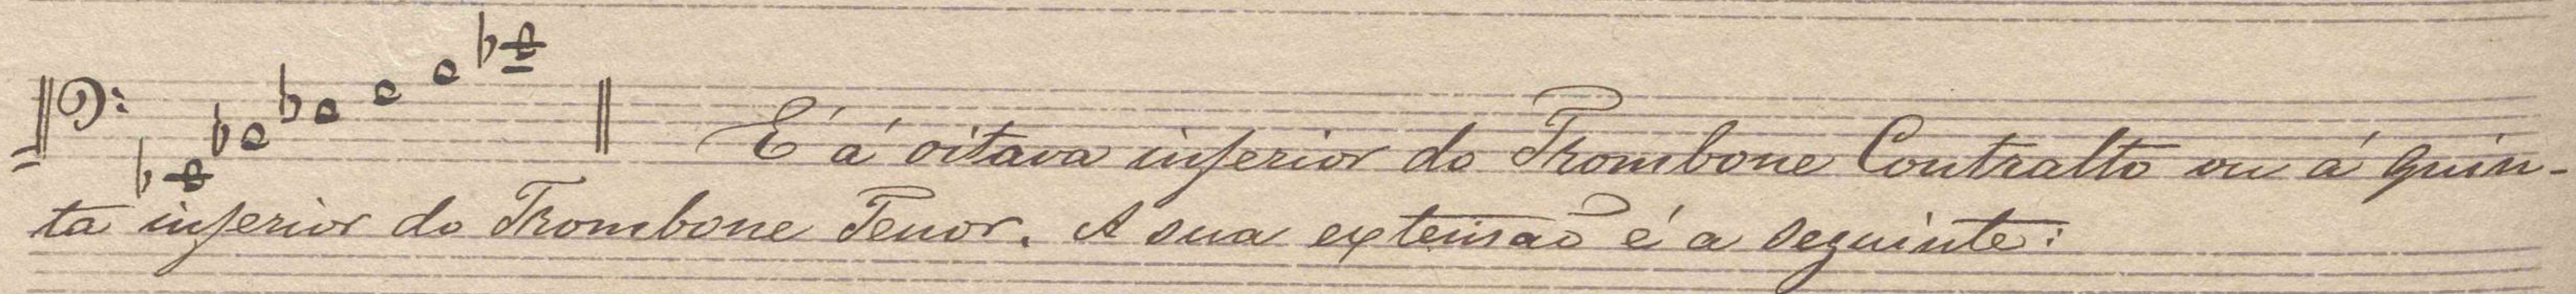 É á oitava inferior do Trombone Contralto ou á quin-
ta inferior do Trombone Tenor. A sua extensão é a seguinte: